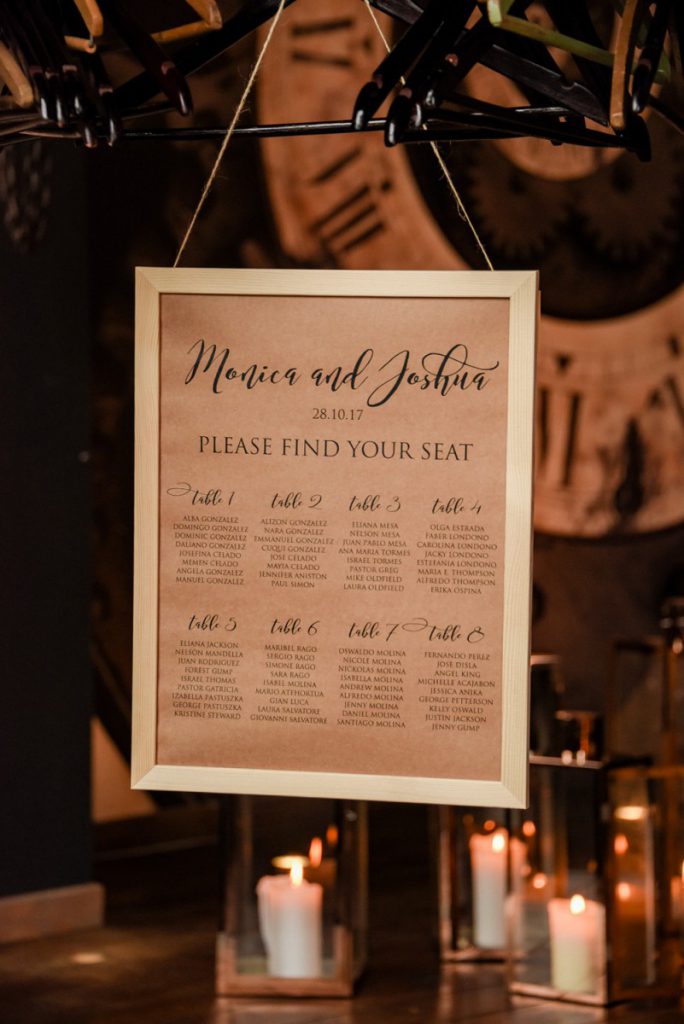 Monica and Joshua
28.10.17
PLEASE FIND YOUR SEAT
table 1
ALBA GONZALEZ
DOMINGO GONZALEZ
DOMINIC GONZALEZ
DALIANO GONZALEZ
JOSEFINA CELADO
MEMEN CELADO
ANGELA GONZALEZ
MANUEL GONZALEZ
table 2
ALIZON GONZALEZ
NARA GONZALEZ
EMMANUEL GONZALEZ
CUQUI GONZALEZ
JOSE CELADO
MAYIA CELADO
JENNIFER ANISTON
PAUL SIMON
table 3
ELIANA MESA
NELSON MESA
JUAN PABLO MESA
ANA MARIA TORMES
ISRAEL TORMES
PASTOR GREG
MIKE OLDFIELD
LAURA OLDFIELD
table 4
OLGA ESTRADA
FABER LONDONO
CAROLINA LONDONO
JACKY LONDONO
ESTEFANIA LONDONO
MARIA E. THOMPSON
ALFREDO THOMPSON
ERIKA OSPINA
table 5
ELIANE JACKSON
NELSON MANDELLA
JUAN RODRIGUEZ
FOREST GUMP
ISRAEL THOMAS
PASTOR GATRICIA
IZABELLA PASTUSZKA
GEORGE PASTUSZKA
KRISTINE STEWARD
table 6
MARIBEL RAGO
SERGIO RAGO
SIMONE RAGO
SARA RAGO
ISABEL MOLINA
MARIO ATEHORTUA
GIAN LUCA
LAURA SALVATORE
GIOVANNI SALVATORE
table 7
OSWALDO MOLINA
NICOLE MOLINA
NICKOLAS MOLINA
ISABELLA MOLINA
ANDREW MOLINA
ALFREDO MOLINA
JENNY MOLINA
DANIEL MOLINA
SANTIAGO MOLINA
table 8
FERNANDO PEREZ
JOSE DISLA
ANGEL KING
MICHELLE ACAJABON
JESSICA ANIKA
GEORGE PETTERSON
KELLY OSWALD
JUSTIN JACKSON
JENNY GUMP